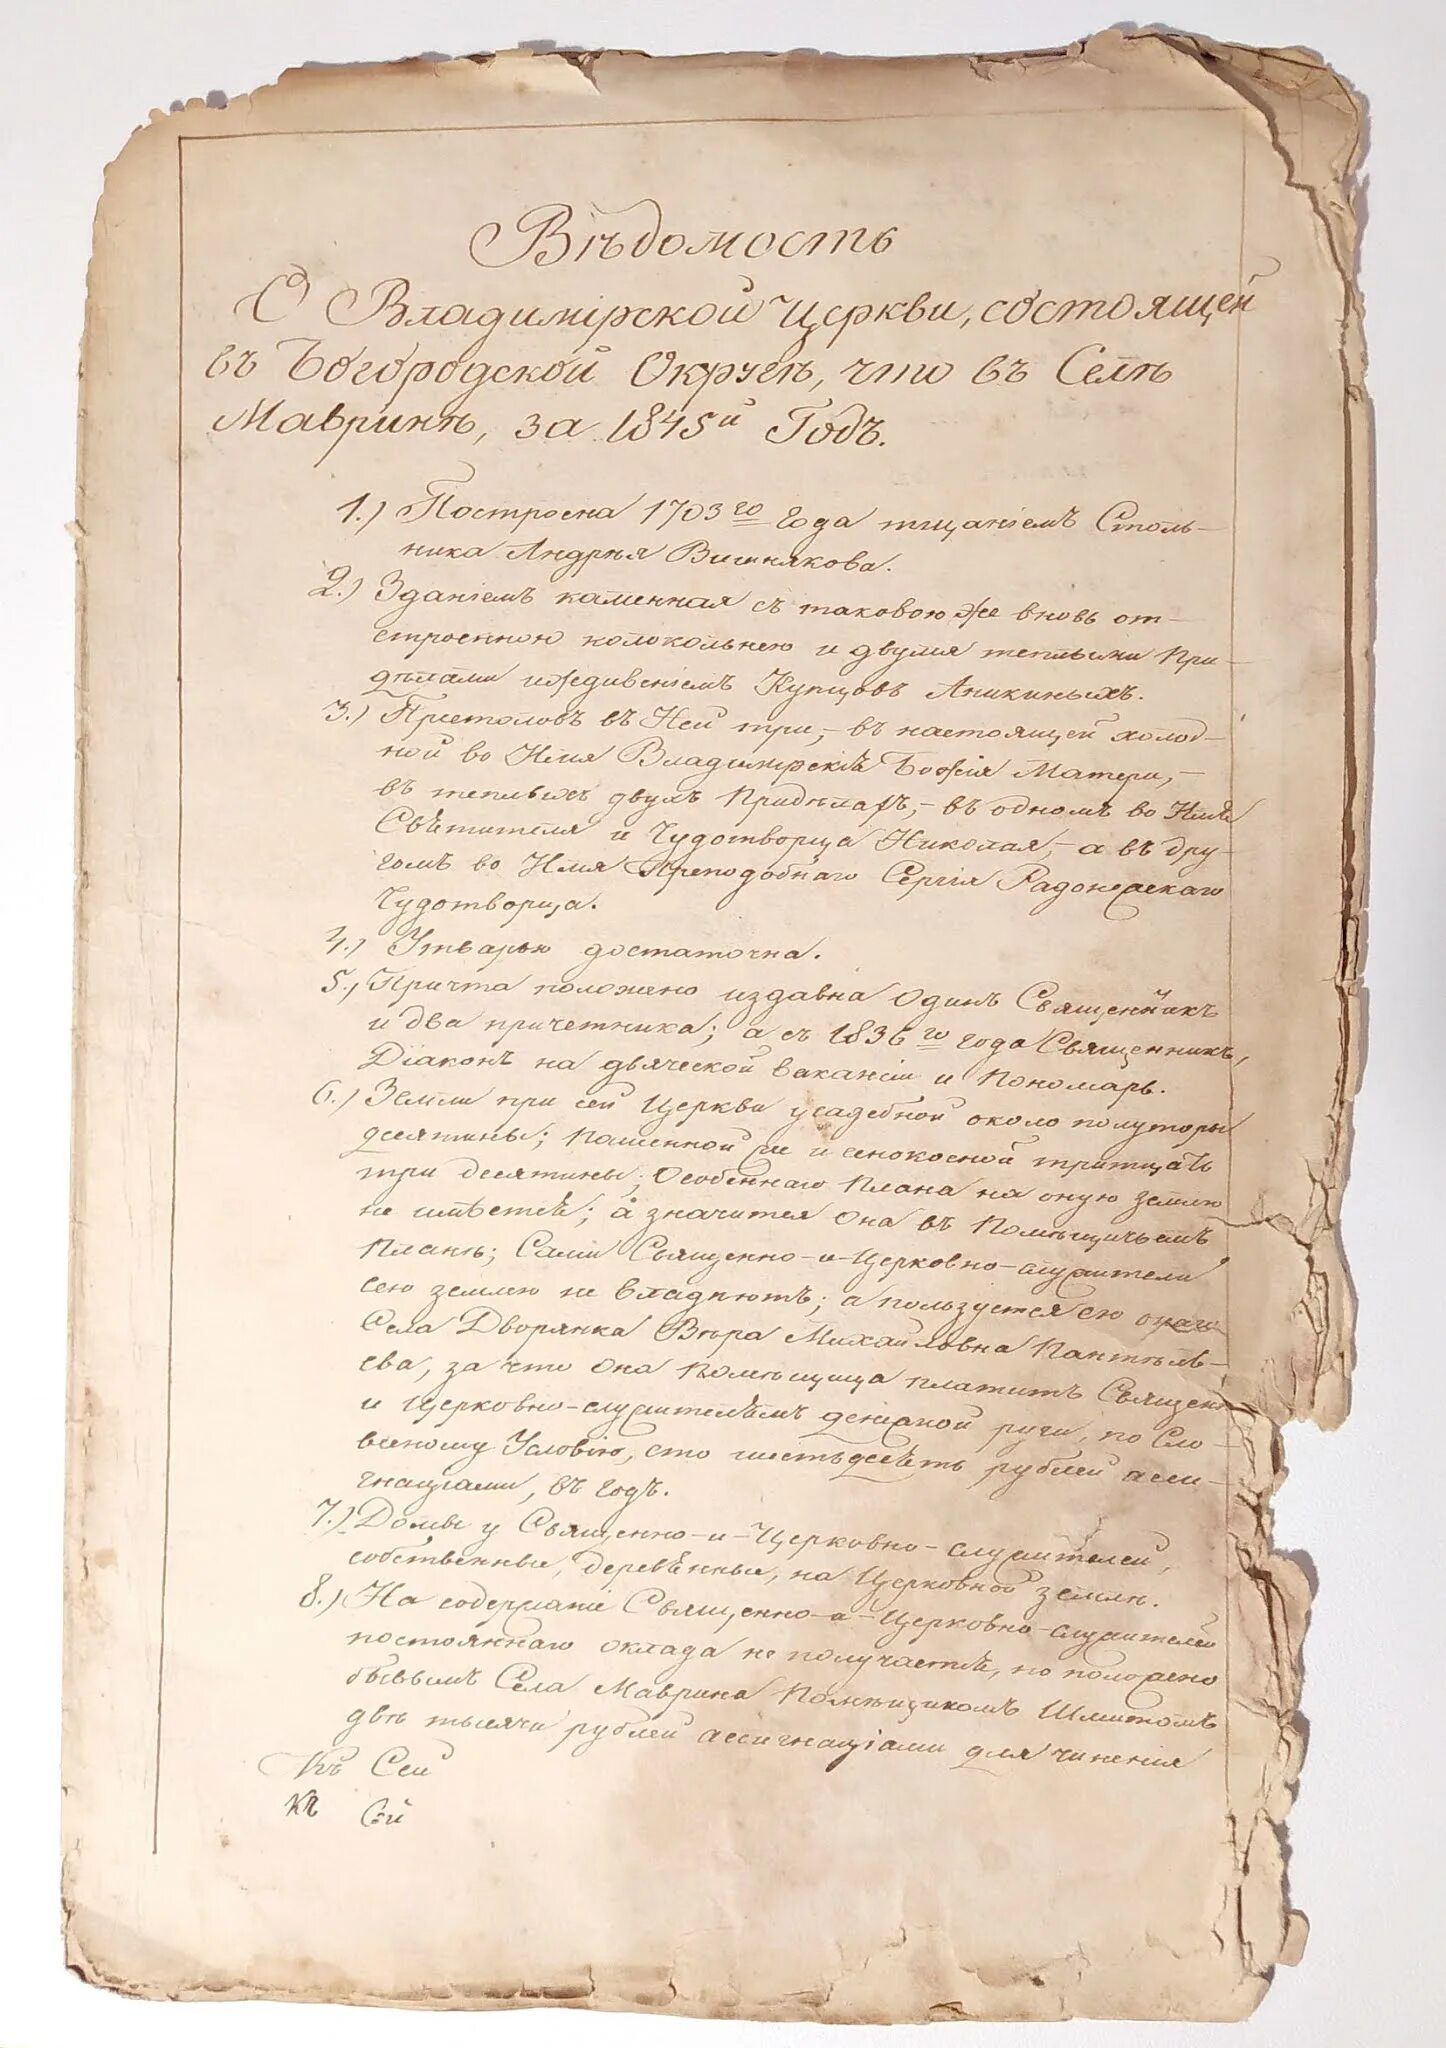 Вѣдомость
О Владимірской Церкви, состоящей
въ Богородской Округѣ, что въ Селѣ
Мавринѣ, за 1845й Годъ.
1.) Построена 1703го года тщаніемъ Столь-
ника Андрѣя Вишнякова.
2.) Зданіемъ каменная съ таковою же вновь от-
строенною колокольнею и двумя теплыми При-
дѣлами иждивеніемъ Купцовъ Аникиныхъ.
3.) Престоловъ въ Ней три, – въ настоящей холод-
ной во Имя Владимірскія Божія Матери, –
въ теплыхъ двухъ Придѣлахъ, – въ одномъ во Имя
Святителя и Чудотворца Николая, – а въ дру-
гомъ во Имя Преподобнаго Сергія Радонежскаго
Чудотворца.
4.) Утварью достаточна.
5.) Причта положено издавна Одинъ Священникъ
и два причетника; а съ 1836го года Священникъ,
Діаконъ на дьяческой вакансіи и Пономарь.
6.) Земли при сей Церкви усадебной около полуторы
десятины; пашенной же и сенокосной тритцать
три десятины; Особеннаго Плана на оную землю
не имѣется; а значится Она въ Помѣщичьемъ
Планѣ; Сами Священно-и-Церковно-служители
сею землею не владѣютъ; а пользуется ею онаго
Села Дворянка Вѣра Михайловна Пантелѣ-
ева, за что Она Помѣщица платитъ Священ
и Церковно-служителямъ денежной руги, по Сло-
весному Условію, сто шестьдесятъ рублей асси-
гнаціами, въ годъ.
7.) Домы у Священно-и-Церковно-служителей,
собственные, деревянные, на Церковной землѣ.
8.) На содержаніе Священно-и-Церковно-служителей
постояннаго оклада не получается, но положено
бывшимъ Села Маврина Помѣщикомъ Шмитомъ
двѣ тысячи рублей ассигнаціами для чиненія
Къ Сей
къ Сей